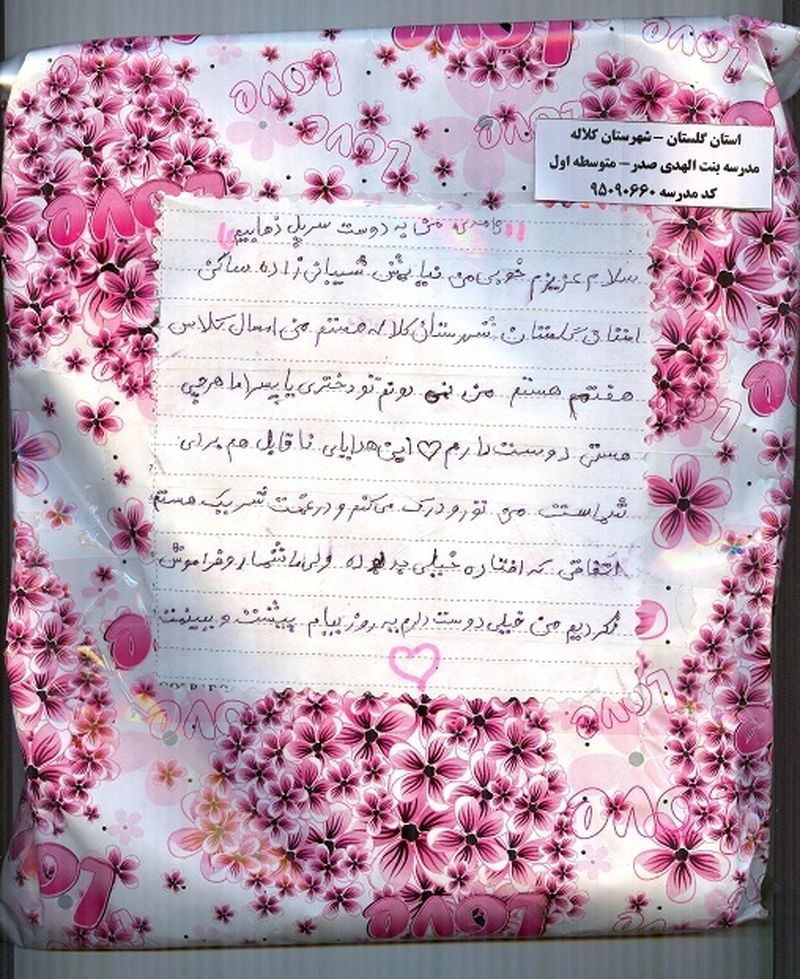 استان گلستان – شهرستان کلاله
مدرسه بنت الهدی صدر – متوسطه اول
کد مدرسه ۹۵۰۹۰۶۶۰
من به دوست سرپل ذهابیم
سلام عزیزم خوبی من نیایش شیبانی زاده ساکن
استان گلستان شهرستان کلاله هستم من امسال کلاس
هفتم هستم من نمی دونم تو دختری یا پسر اما هرچی
هستی دوست دارم ♡ این هدایای ناقابل هم برای
شماست من تورو درک می‌کنم و در غمت شریک هستم
اتفاقی که افتاده خیلی بد بوده ولی ما شما رو فراموش
نکردیم من خیلی دوست دارم یه روز بیام پیشت و ببینمت
LOVE
LOVE
LOVE
LOVE
LOVE
LOVE
LOVE